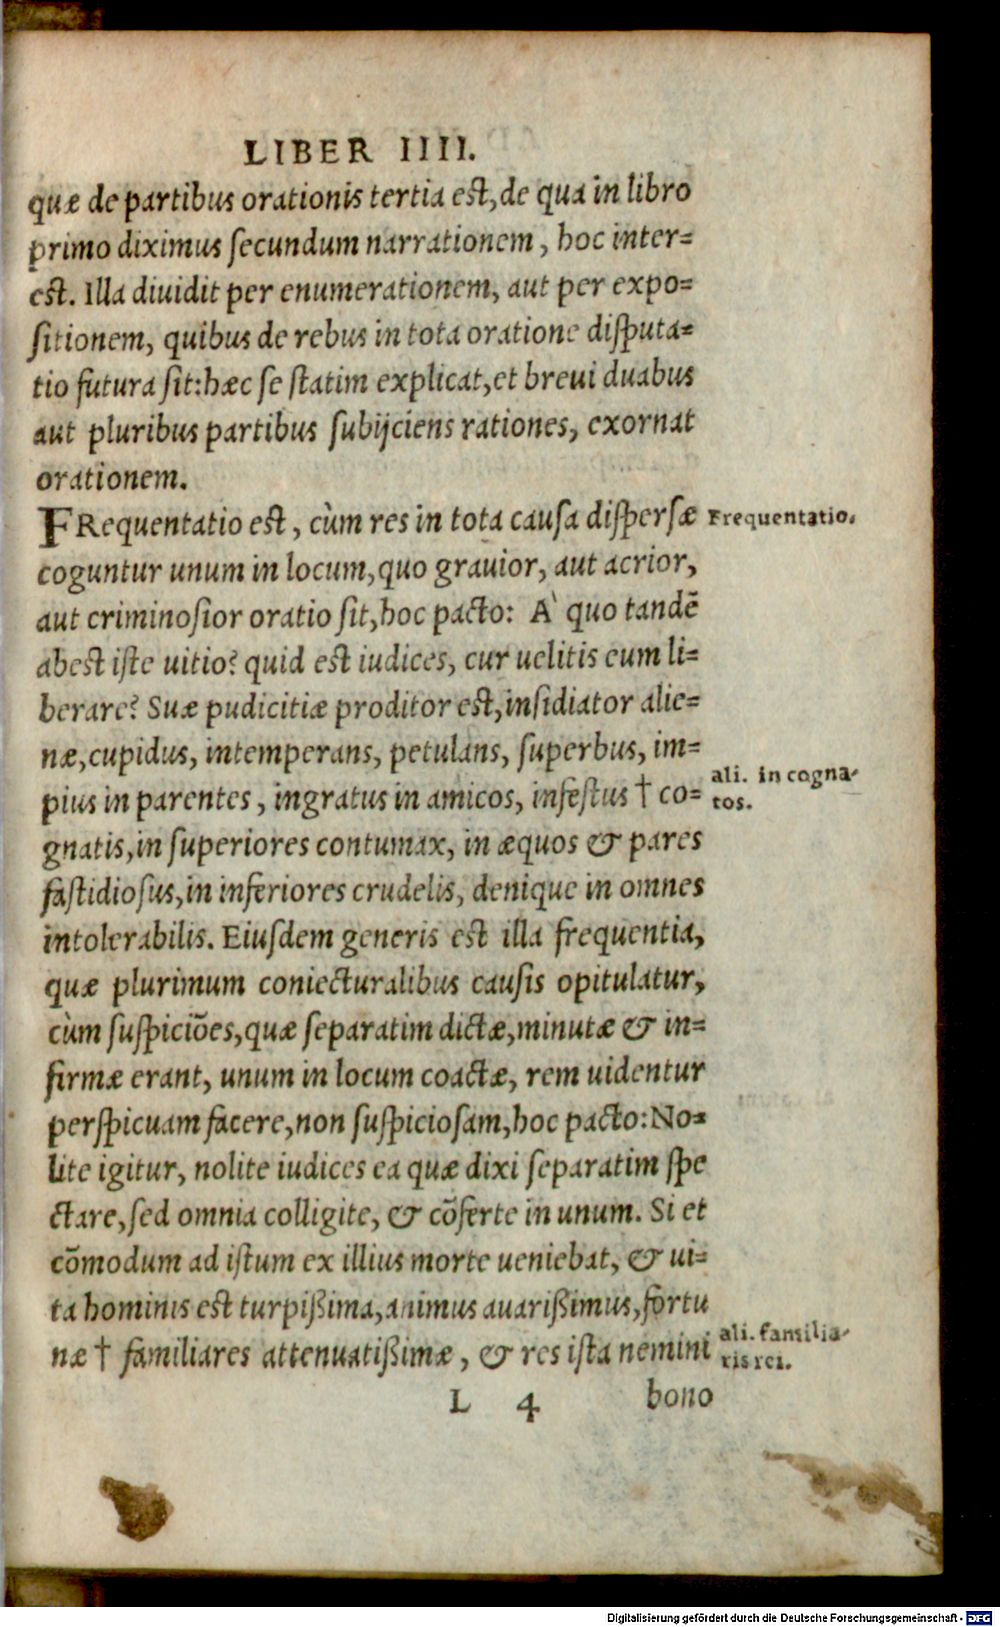 LIBER IIII.
quæ de partibus orationis tertia est, de qua in libro
primo diximus secundum narrationem, hoc inter=
est. Illa diuidit per enumerationem, aut per expo=
sitionem, quibus de rebus in tota oratione disputa=
tio futura sit: hæc se statim explicat, et breui duabus
aut pluribus partibus subijciens rationes, exornat
orationem.
FRequentatio est, cùm res in tota causa dispersæ
Frequentatio.
coguntur unum in locum, quo grauior, aut acrior,
aut criminosior oratio sit, hoc pacto: A` quo tandẽ
abest iste uitio? quid est iudices, cur uelitis eum li=
berare? Suæ pudicitiæ proditor est, insidiator alie=
næ, cupidus, intemperans, petulans, superbus, im=
pius in parentes, ingratus in amicos, infestus † co=
ali. in cogna-
tos.
gnatis, in superiores contumax, in æquos & pares
fastidiosus, in inferiores crudelis, denique in omnes
intolerabilis. Eiusdem generis est illa frequentia,
quæ plurimum coniecturalibus causis opitulatur,
cùm suspiciões, quæ separatim dictæ, minutæ & in=
firmæ erant, unum in locum coactæ, rem uidentur
perspicuam facere, non suspiciosam, hoc pacto: No=
lite igitur, nolite iudices ea quæ dixi separatim spe
ctare, sed omnia colligite, & cõferte in unum. Si et
cõmodum ad istum ex illius morte ueniebat, & ui=
ta hominis est turpißima, animus auarißimus, fortu
næ † familiares attenuatißimæ, & res ista nemini
ali. familia-
ris rei.
L 4
bono
Digitalisierung gefördert durch die Deutsche Forschungsgemeinschaft - DFG